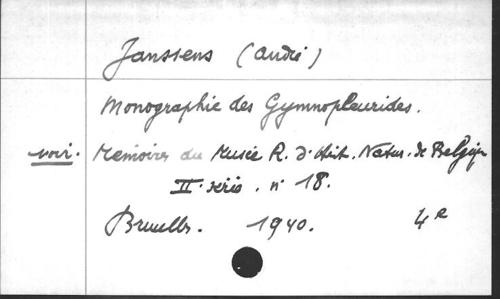 Janssens (André)
Monographie des Gymnopleurides.
voir. Mémoires du Musée R. d'Hist. Natur. de Belgique
II. série. n° 18.
Bruxelles. 1940. 4e